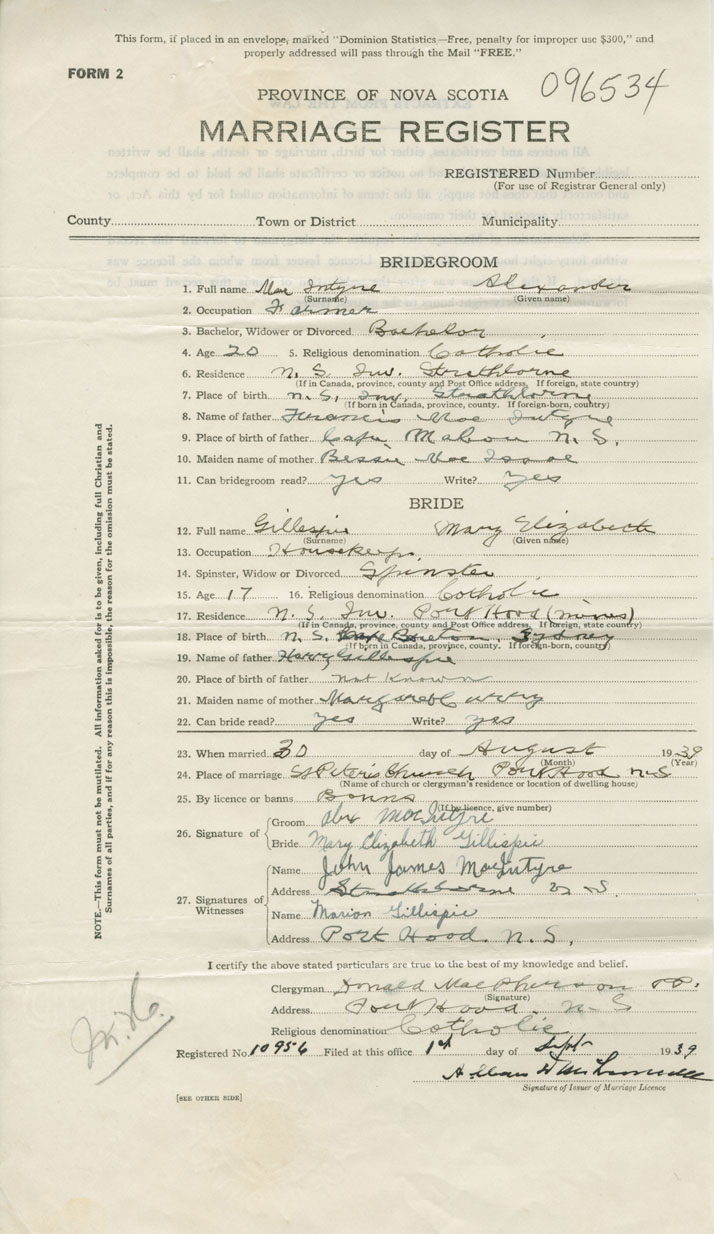 This form, if placed in an envelope, marked "Dominion Statistics—Free, penalty for improper use $300," and
properly addressed will pass through the Mail "FREE."
FORM 2
096534
PROVINCE OF NOVA SCOTIA
MARRIAGE REGISTER
REGISTERED Number
(For use of Registrar General only)
County Town or District Municipality
BRIDEGROOM
1. Full name Mac Intyre Alexander
(Surname) (Given name)
2. Occupation Farmer
3. Bachelor, Widower or Divorced Bachelor
4. Age 20 5. Religious denomination Catholic
6. Residence N. S. Inv. Strathlorne
(If in Canada, province, county and Post Office address. If foreign, state country)
7. Place of birth N. S. Inv. Strathlorne
(If born in Canada, province, county. If foreign-born, country)
8. Name of father Francis Mac Intyre
9. Place of birth of father Cape Mabou N. S.
10. Maiden name of mother Bessie Mac Isaac
11. Can bridegroom read? yes Write? yes
BRIDE
12. Full name Gillespie Mary Elizabeth
(Surname) (Given name)
13. Occupation Housekeeper
14. Spinster, Widow or Divorced Spinster
15. Age 17 16. Religious denomination Catholic
17. Residence N. S. Inv. Port Hood (mines)
(If in Canada, province, county and Post Office address. If foreign, state country)
18. Place of birth N. S. Cape Breton, Sydney
(If born in Canada, province, county. If foreign-born, country)
19. Name of father Harry Gillespie
20. Place of birth of father not Known
21. Maiden name of mother Margaret Curry
22. Can bride read? yes Write? yes
23. When married 30 day of August 1939
(Month) (Year)
24. Place of marriage St Peter's Church Port Hood N.S.
(Name of church or clergyman's residence or location of dwelling house)
25. By licence or banns Banns
(If by licence, give number)
26. Signature of
Groom Alex MacIntyre
Bride Mary Elizabeth Gillispie
27. Signatures of Witnesses
Name John James MacIntyre
Address Strathlorne N. S.
Name Marion Gillispie
Address Port Hood. N. S.
I certify the above stated particulars are true to the best of my knowledge and belief.
Clergyman Donald MacPherson P.P.
(Signature)
Address Port Hood. N. S
Religious denomination Catholic
Registered No. 10956 Filed at this office 1st day of Sept 1939
Signature of Issuer of Marriage Licence
[SEE OTHER SIDE]
NOTE.—This form must not be mutilated. All information asked for is to be given, including full Christian and
Surnames of all parties, and if for any reason this is impossible, the reason for the omission must be stated.